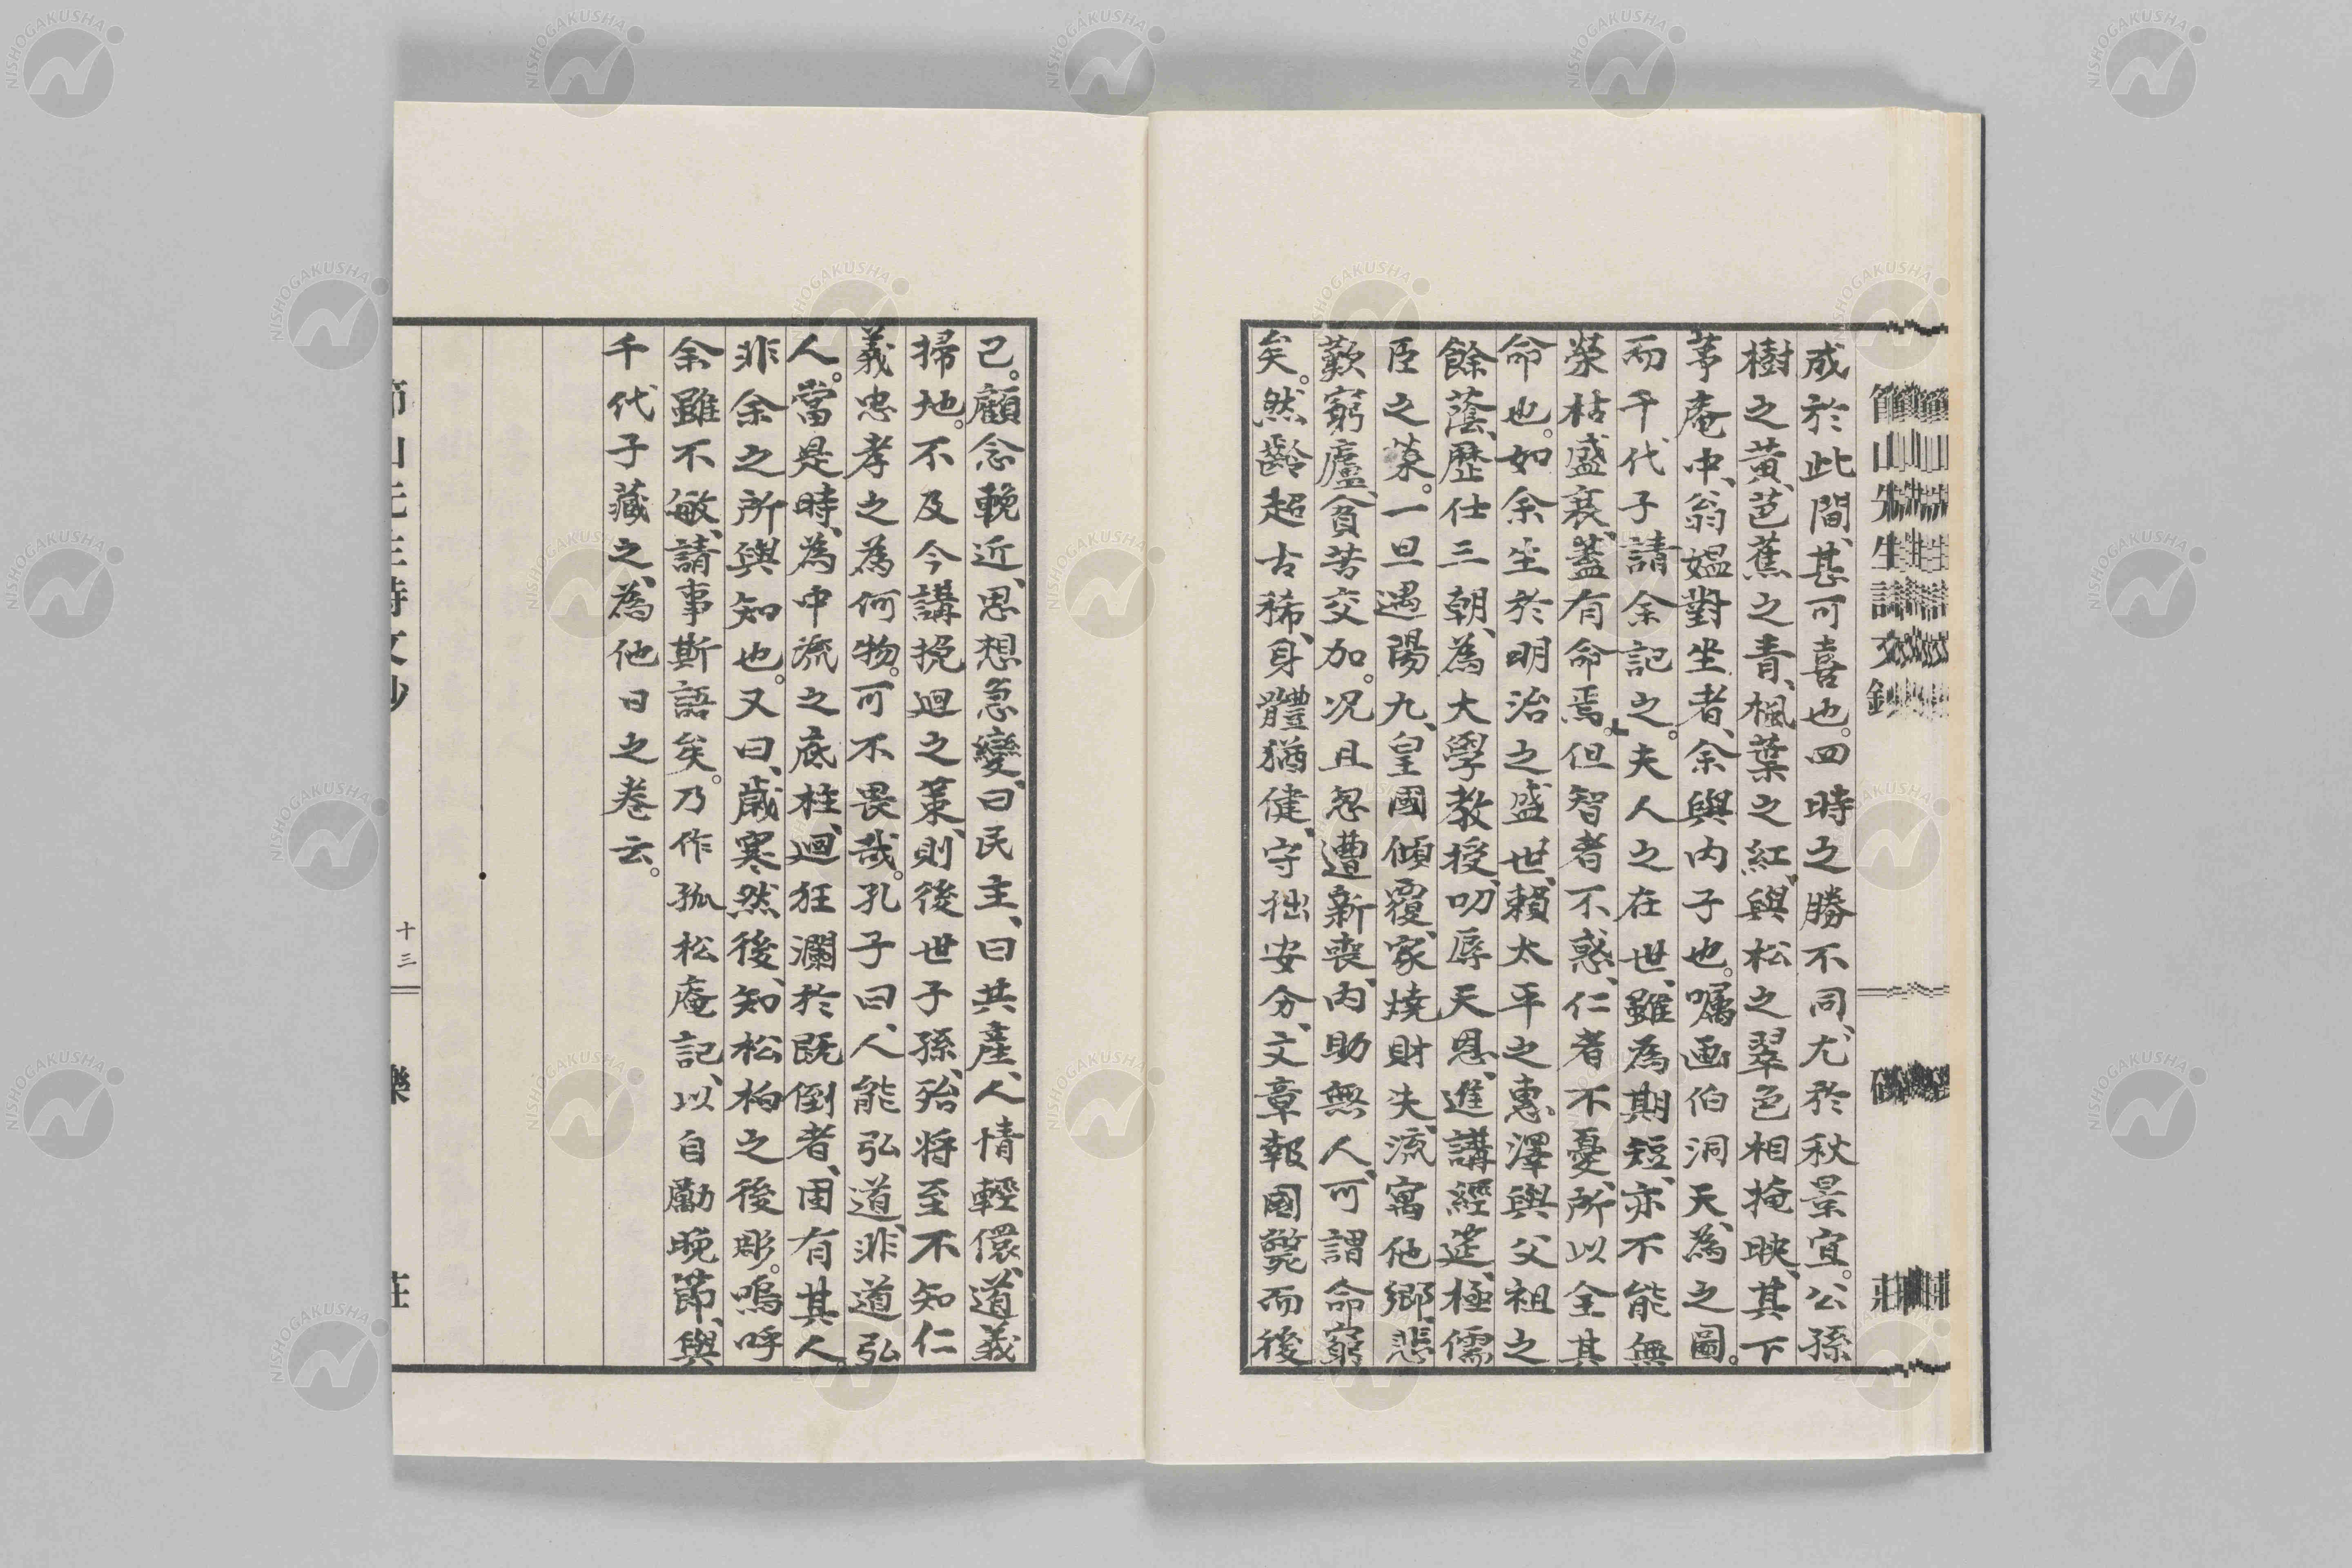 成於此間、甚可喜也。四時之勝不同、尤於秋景宜。公孫
樹之黃、芭蕉之青、楓葉之紅、與松之翠色相掩映、其下
茅庵中、翁媼對坐者、余與内子也。囑画伯洞天、為之圖。
而千代子請余記之。夫人之在世、雖為期短、亦不能無
榮枯盛衰、蓋有命焉。但智者不惑、仁者不憂、所以全其
命也。如余生於明治之盛世、賴太平之惠澤與父祖之
餘蔭、歷仕三朝、為大學教授、叨辱天恩、進講經筵、極儒
臣之榮。一旦遇陽九、皇國傾覆、家燒財失、流寓他鄉、悲
歎窮廬、貧苦交加。况且忽遭新喪、内助無人、可謂命窮
矣。然齡超古稀、身體猶健、守拙安分、文章報國、斃而後
己。顧念輓近、思想急變、曰民主、曰共產、人情輕儇、道義
掃地。不及今講挽迴之策、則後世子孫、殆將至不知仁
義忠孝之為何物。可不畏哉。孔子曰、人能弘道、非道弘
人。當是時、為中流之底柱、迴狂瀾於既倒者、固有其人。
非余之所與知也。又曰、歲寒然後、知松柏之後彫。嗚呼
余雖不敏、請事斯語矣。乃作孤松庵記、以自勵晚節、與
千代子藏之、為他日之卷云。
節山先生詩文鈔
十三
樂
莊
NISHOGAKUSHA